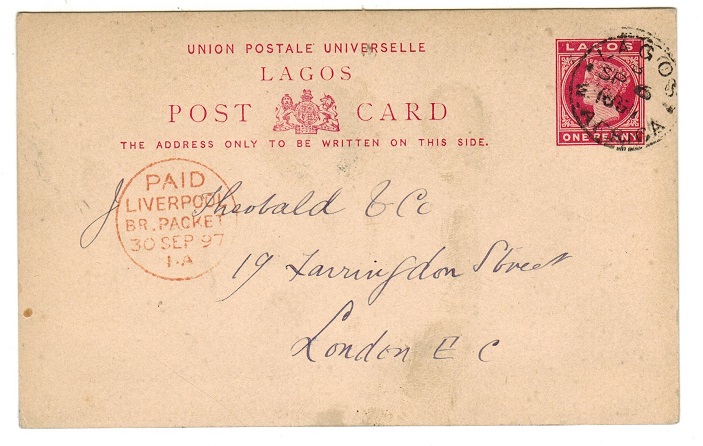 UNION POSTALE UNIVERSELLE
LAGOS
POST CARD
THE ADDRESS ONLY TO BE WRITTEN ON THIS SIDE.
LAGOS
ONE PENNY
LAGOS
SP 6
W. AFRICA
PAID
LIVERPOOL
BR. PACKET
30 SEP 97
1.A
J Theobald & Co
19 Farringdon Street
London E C